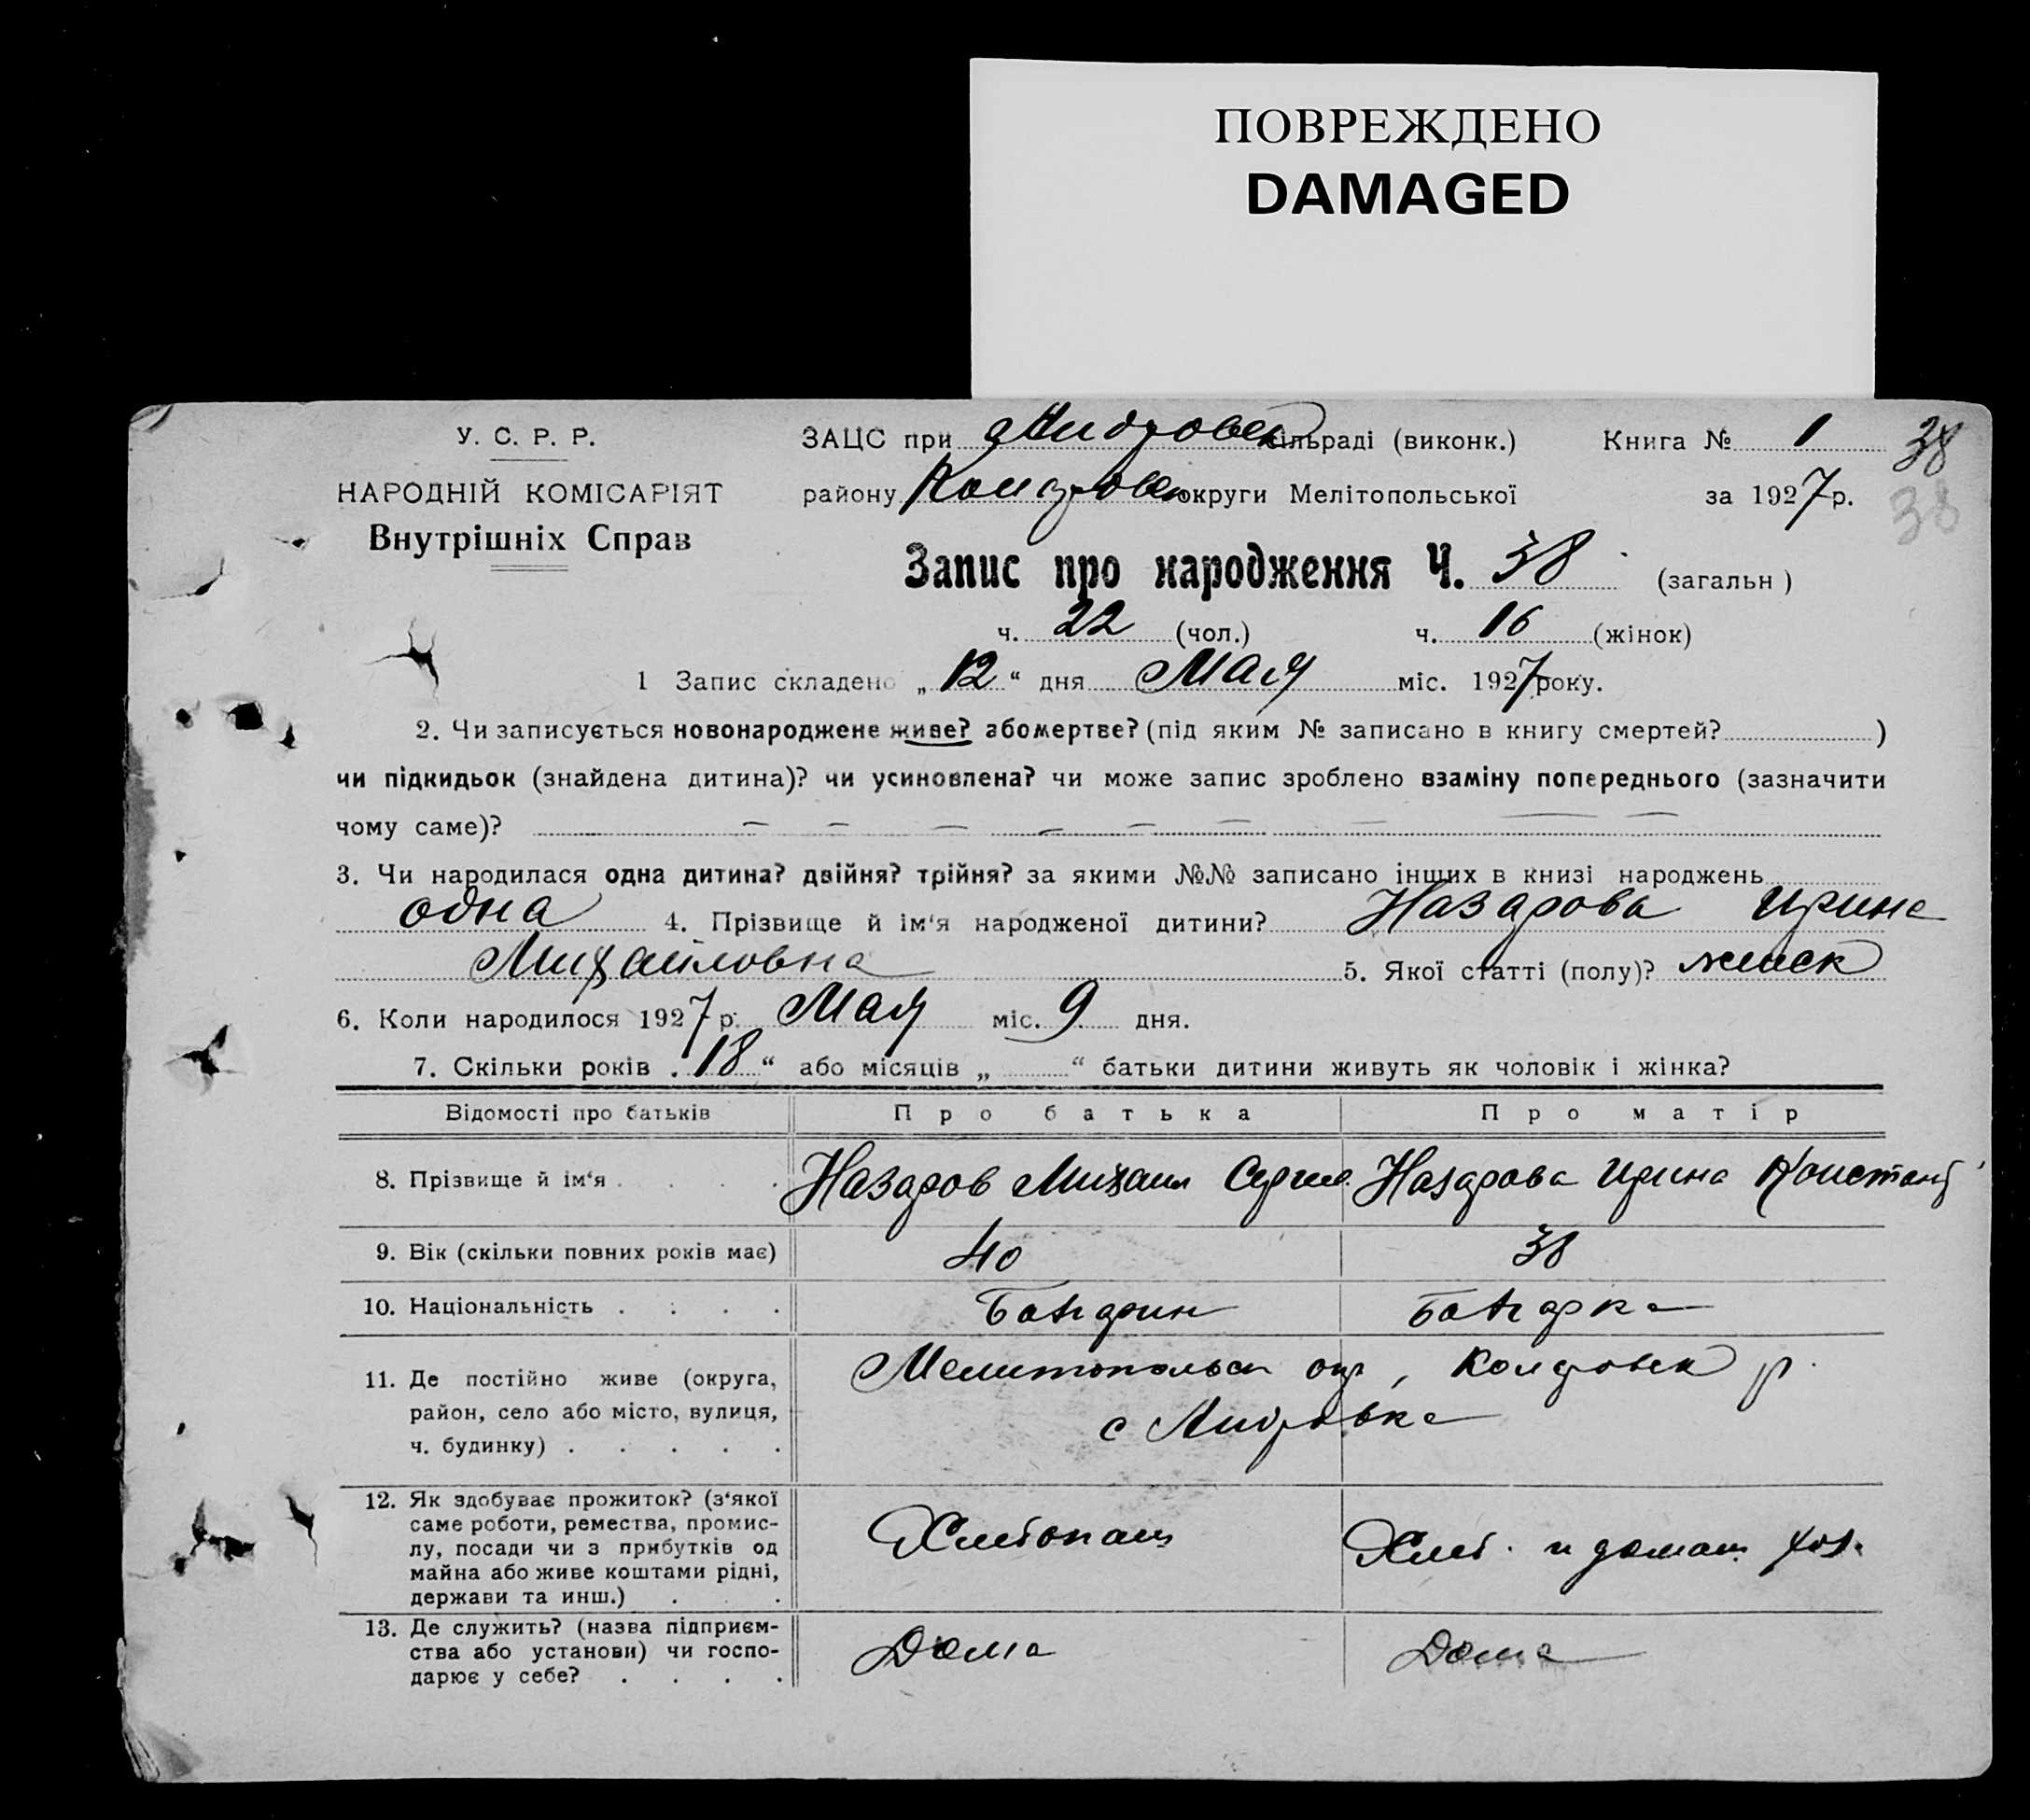 ПОВРЕЖДЕНО
DAMAGED
У. С. Р. Р.
НАРОДНІЙ КОМІСАРІЯТ
Внутрішніх Справ
ЗАЦС при сільраді (виконк.) Книга № 1 38
району округи Мелітопольської за 1927 р. 38
Запис про народження Ч. 38 (загальн)
ч. 22 (чол.) ч. 16 (жінок)
1 Запис складено „12“ дня Мая міс. 1927 року.
2. Чи записується новонароджене живе? або мертве? (під яким № записано в книгу смертей? )
чи підкидьок (знайдена дитина)? чи усиновлена? чи може запис зроблено взаміну попереднього (зазначити
чому саме)? — — — — — — — — —
3. Чи народилася одна дитина? двійня? трійня? за якими №№ записано інших в книзі народжень
одна 4. Прізвище й ім‘я народженої дитини? Назарова Ирина
Михайловна 5. Якої статті (полу)? женск
6. Коли народилося 1927 р. Мая міс. 9 дня.
7. Скільки років „18“ або місяців „ “ батьки дитини живуть як чоловік і жінка?
Відомості про батьків Про батька Про матір
8. Прізвище й ім‘я . . . . Назаров Михаил Сергеев Назарова Ирина Констант
9. Вік (скільки повних років має) 40 38
10. Національність . . . . Болгарин Болгарка
11. Де постійно живе (округа,
район, село або місто, вулиця,
ч. будинку) . . . . .
Мелитопольск окр, р.
с
12. Як здобуває прожиток? (з‘якої
саме роботи, ремества, промис-
лу, посади чи з прибутків од
майна або живе коштами рідні,
держави та инш.) . . .
Хлебопаш Хлеб. и домаш хоз.
13. Де служить? (назва підприєм-
ства або установи) чи госпо-
дарює у себе? . . . .
Дома Дома